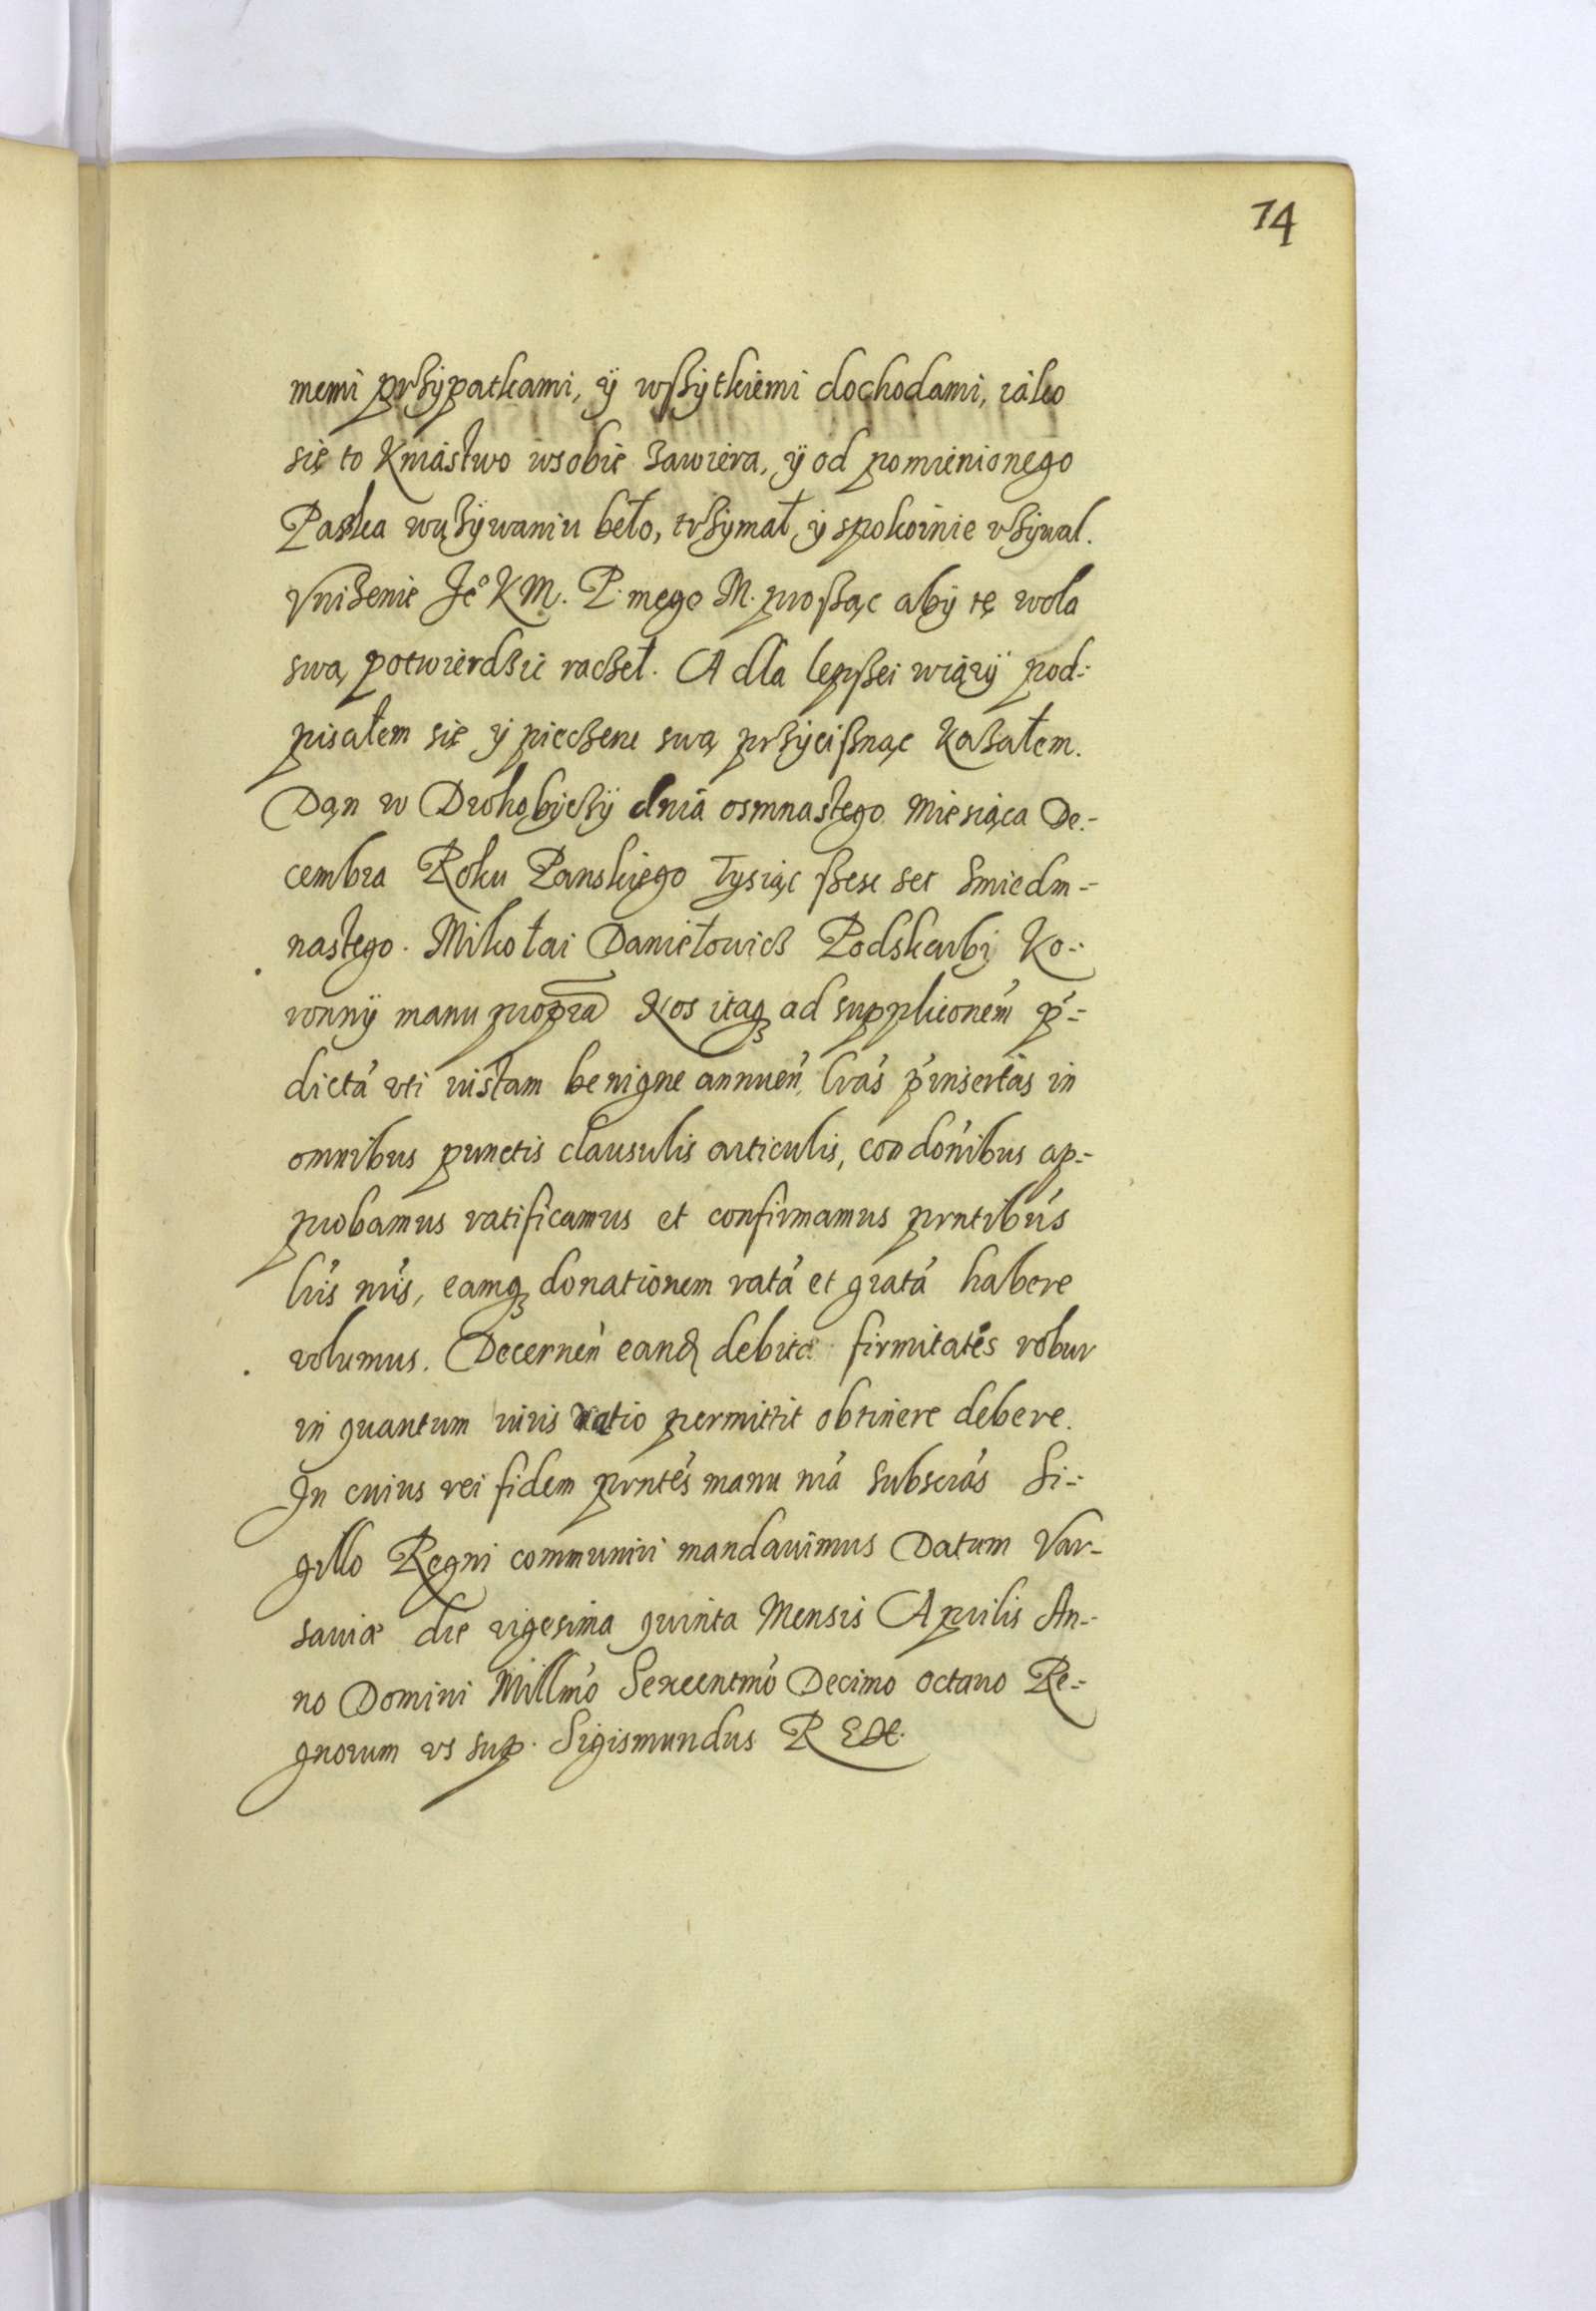 74
memi przÿpatkami, ÿ wßÿtkiemi dochodami, iáko
się to Kniástwo wsobie zawiera, ÿ od pomienionego
Paska wųzÿwaniu beło, trzÿmał, ÿ spokoinie vzÿwal.
Vnizenie Jeº K M. P. mego M. proßąc abÿ tę wola
swą potwierdzic raczeł. A dla lepßei wiąrÿ pod-
pisałem się ÿ pieczene swą przÿcißnąc Kazałem.
Dąn w Drohobÿczÿ dniá osmnastego Miesiąca De-
cembra Roku Panskiego Tysiąc ßesc set Smiedm-
nastego. Mikołai Daniełowicz Podskarbi Ko-
ronnÿ manu propra Nos itaq ad suppliconém ṕ-
dictá vti iustam benigne annueń, lrás ṕinsertás in
omnibus punctis clausulis articulis, condónibus ap-
probamus ratificamus et confirmamus prntibús
lrís nrís, eamq donationem ratá et gratá habere
volumus. Decerneń eand debitæ firmitatés robur
in quantum iuris ratio permittit obtinere debere.
In cuius rei fidem prntés manu nrá subscrás Si-
gillo Regni communiri mandauimus Datum Var-
sauiæ die vigesima quinta Mensis Aprilis An-
no Domini Millmó Sexcentmó Decimo octauo Re-
gnorum vs sup. Sigismundus R EX.